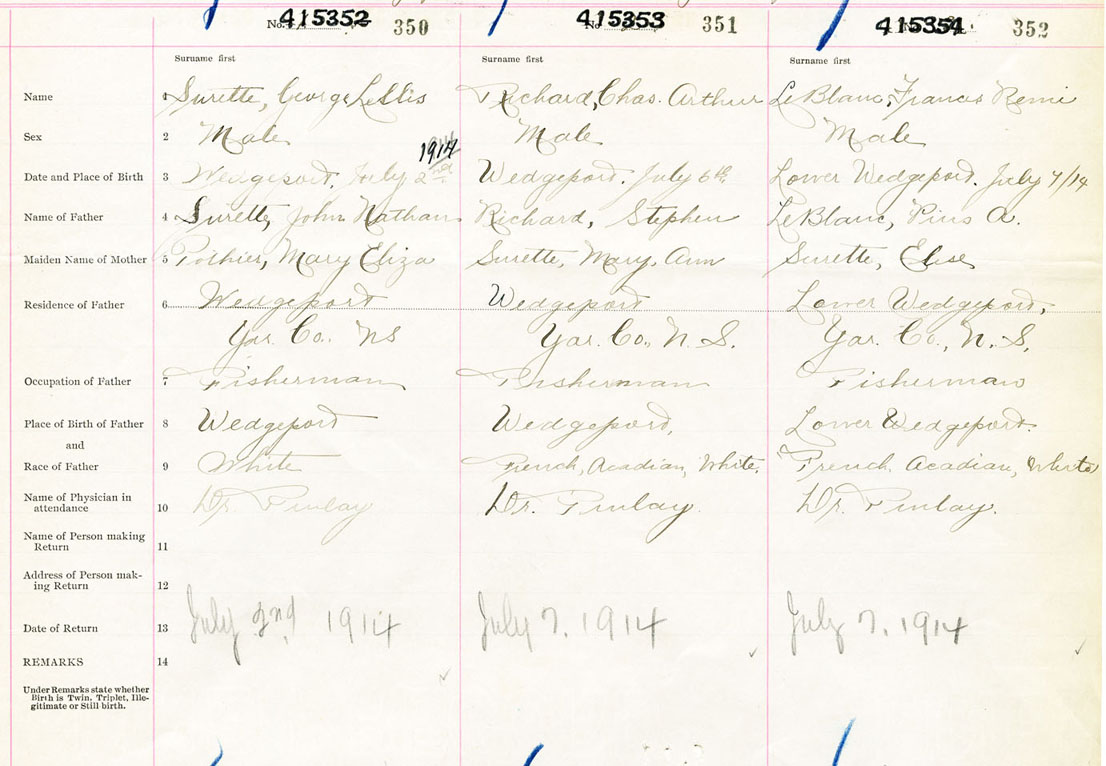 415352 350 415353 351 415354 352
Surname first Surname first Surname first
Name 1 Surette, George Leslis Richard, Chas. Arthur LeBlanc, Francis Remi
Sex 2 Male Male Male
1914
Date and Place of Birth 3 Wedgeport, July 2nd Wedgeport. July 6th Lower Wedgeport. July 7/14
Name of Father 4 Surette, John Nathan Richard, Stephen LeBlanc, Pius A.
Maiden Name of Mother 5 Pothier, Mary Eliza Surette, Mary Ann Surette, Elise
Residence of Father 6 Wedgeport Wedgeport Lower Wedgeport,
Yar. Co. NS Yar. Co., N. S. Yar. Co., N. S.
Occupation of Father 7 Fisherman Fisherman Fisherman
Place of Birth of Father 8 Wedgeport Wedgeport, Lower Wedgeport.
and
Race of Father 9 White French, Acadian, White. French Acadian, White
Name of Physician in
attendance 10 Dr. Finlay Dr. Finlay Dr. Finlay.
Name of Person making
Return 11
Address of Person mak-
ing Return 12
Date of Return 13 July 2nd 1914 July 7. 1914 July 7. 1914
REMARKS 14
Under Remarks state whether
Birth is Twin, Triplet, Ille-
gitimate or Still birth.